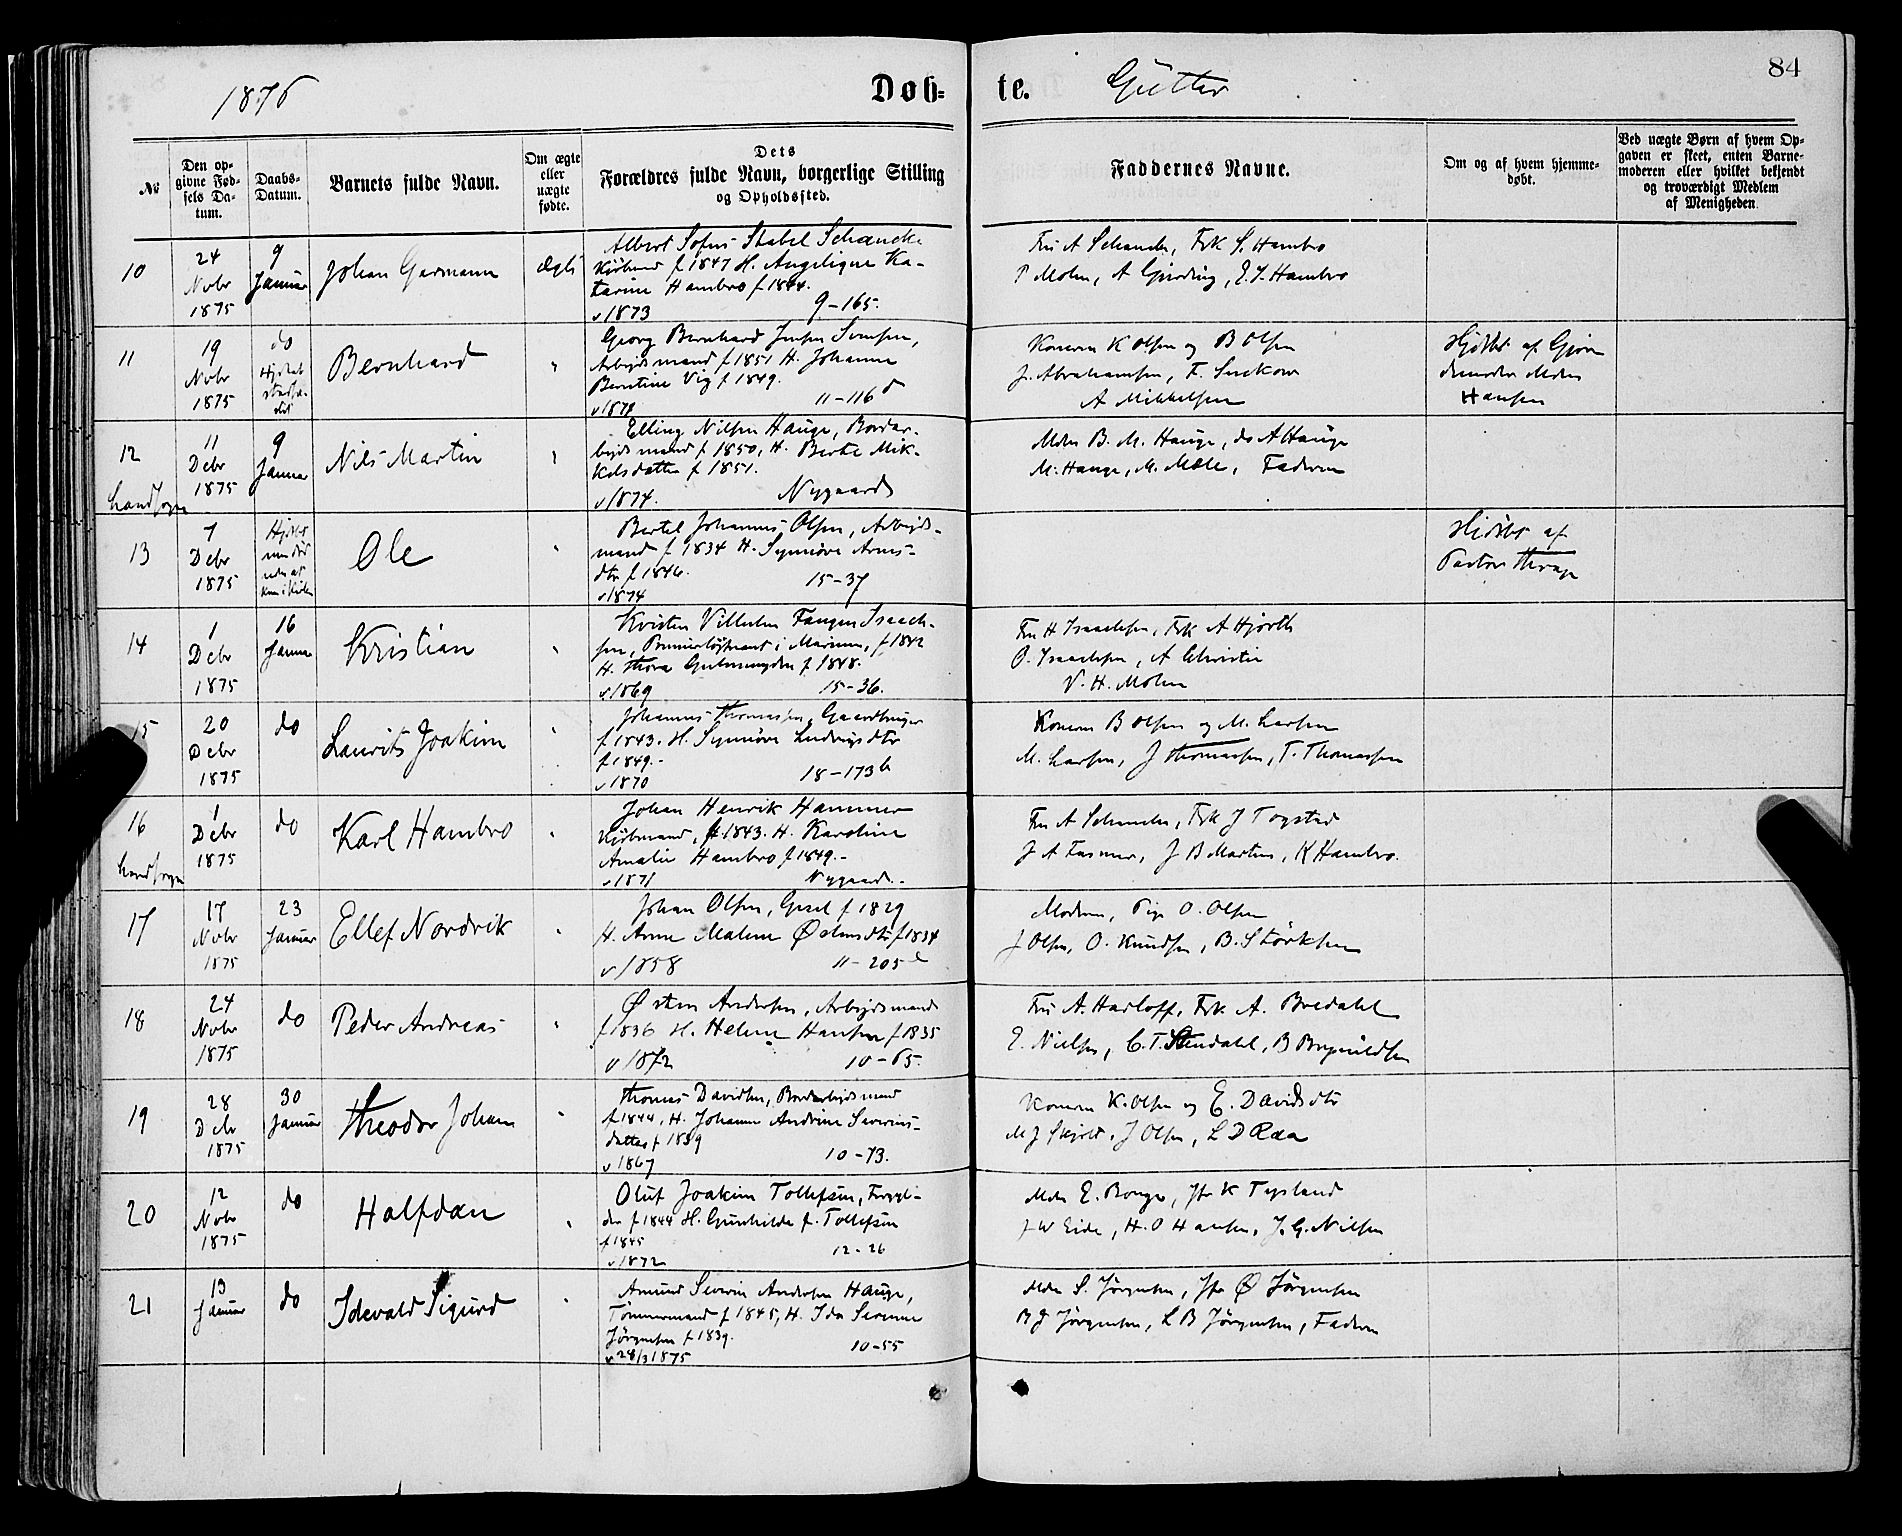 1876
Døb=
te.
Gutter
84
No
Den op-
givne Fød-
sels Da-
tum.
Daabs-
Datum.
Barnets fulde Navn.
Om ægte
eller
uægte
fødte.
Dets
Forældres fulde Navn, borgerlige Stilling
og Opholdssted.
Faddernes Navne.
Om og af hvem hjemme-
døbt.
Ved uægte Børn af hvem Op-
gaven er skeet, enten Barne-
moderen eller hvilket bekjendt
og troværdigt Medlem
af Menigheden.
10
24
Novbr
1875
9
Januar
Johan Garmann
Ægte
Albert Sofus Stabel Schancke
Kjøbmd f 1847 H. Angelique Ka-
tarine Hambro f 1844.
v 1873 9-165.
Fru A Schancke, Frk S. Hambro
P Mohn, A Gjerding, E. J. Hambro
11
19
Novbr
1875
do
Bernhard
"
Georg Bernhard Jensen
Arbejdsmand f 1851 H. Johanne
Berntine Vig f 1849.
11-116
Konerne K Olsen og B Olsen
J. Abrahamsen, F. Suckow
A Mikkelsen
Hjdøbt af Gjor
demoder Mdm
Hansen
12
Landsogn
11
Debr
1875
9
Januar
Nils Martin
"
Elling Nilsen Hauge, Bordar-
bejdsmand f 1850, H. Berte Mik-
kelsdatter f 1851.
v 1874. Nygaard
Mdm B. M. Hauge, do A Hauge
M. Hauge, M. Mæle, Faderen
13
7
Debr
1875
Ole
"
Bertel Johannes Olsen, Arbejds-
mand f 1834 H. Synnøve Arns-
dtr f 1846.
v 1874 15-37
Hjdøbt af
Pastor Thrap
14
1
Debr
1875
16
Januar
Kristian
"
Kristen Vilhelm Fangen Isaach-
sen, Premierløjtnant i Marinen, f 1842
H. Thora f 1848.
v 1869 15-36.
Fru H Isaachsen, Frk A Hjorth
O. Isaachsen, A Christie
V. H. Mohn
15
20
Debr
1875
do
Laurits Joakim
"
Johannes Thomassen, Gaardbruger
f 1843. H. Synnøve Ludvigsdtr
f 1849.-
v 1870 18-173b
Konerne B Olsen og M. Larsen
M. Larsen, J Thomassen, T. Thomassen
16
Landsogn
1
Debr
1875
do
Karl Hambro
"
Johan Henrik Hammer
Kjøbmand, f 1843. H. Karoline
Amalie Hambro f 1849.-
v 1871 Nygaard.-
Fru A Schancke, Frk J Togstad
J A Fasmer, J B Martens, K Hambro.
17
17
Novbr
1875
23
Januar
Ellef Nordvik
"
Johan Olsen, Gesel f 1829
H. Anne Malene f 1834
v 1858 11-205
Moderen, Pige O. Olsen
J Olsen, O. Knudsen, B. Størksen
18
24
Novbr
1875
do
Peder Andreas
"
Østen Andersen, Arbejdsmand
f 1836 H. Helene Hansen f 1835
v 1872 10-65.
Fru A. Harloff, Frk A. Bredahl
E. Nielsen, C. T. Stendahl, B Brynildsen
19
28
Debr
1875
30
Januar
Theodor Johan
"
Thomas Davidsen, Bordarbejdsmand
f 1844, H. Johanne Andrine Severins-
datter f 1839
v 1867 10-73.
Konerne K. Olsen og E. Davidsdtr
M J Skjold, J Olsen, L D Raa
20
12
Novbr
1875
do
Halfdan
"
Oluf Joakim Tollefsen,
f 1844 H. Gunhilde f. Tollefsen
f 1845
v 1872 12-26
Mdm E. Bonge, Jfr K Tysland
J W Eide, H. O Hansen, J. G. Nilsen
21
13
Januar
do
Idevald Sigurd
"
Amund Severin Andersen Hauge,
Tømmermand f 1845, H. Ida Serene
Jørgensen f 1839.
v 28/3 1875 10-55
Mdm S. Jørgensen, Jfr Ø Jørgensen
B J Jørgensen, L B Jørgensen, Faderen